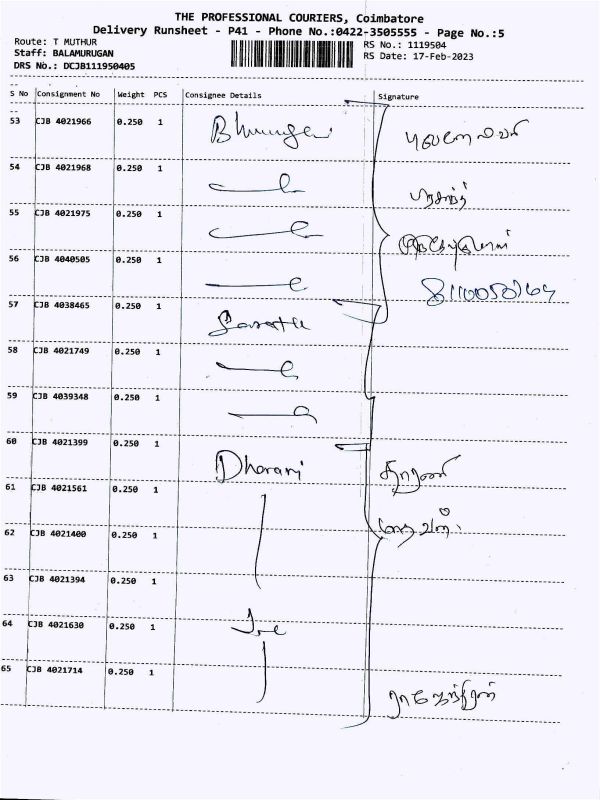 THE PROFESSIONAL COURIERS, Coimbatore
Delivery Runsheet - P41 - Phone No.:0422-3505555 - Page No.:5
Route: T MUTHUR
RS No.: 1119504
Staff: BALAMURUGAN
RS Date: 17-Feb-2023
DRS No.: DCJB111950405
S No Consignment No Weight PCS Consignee Details Signature
53 CJB 4021966 0.250 1
54 CJB 4021968 0.250 1
55 CJB 4021975 0.250 1
56 CJB 4040505 0.250 1
57 CJB 4038465 0.250 1
58 CJB 4021749 0.250 1
59 CJB 4039348 0.250 1
60 CJB 4021399 0.250 1 Dharani தாரணி
61 CJB 4021561 0.250 1
62 CJB 4021400 0.250 1
63 CJB 4021394 0.250 1
64 CJB 4021630 0.250 1
65 CJB 4021714 0.250 1 ராஜேந்திரன்